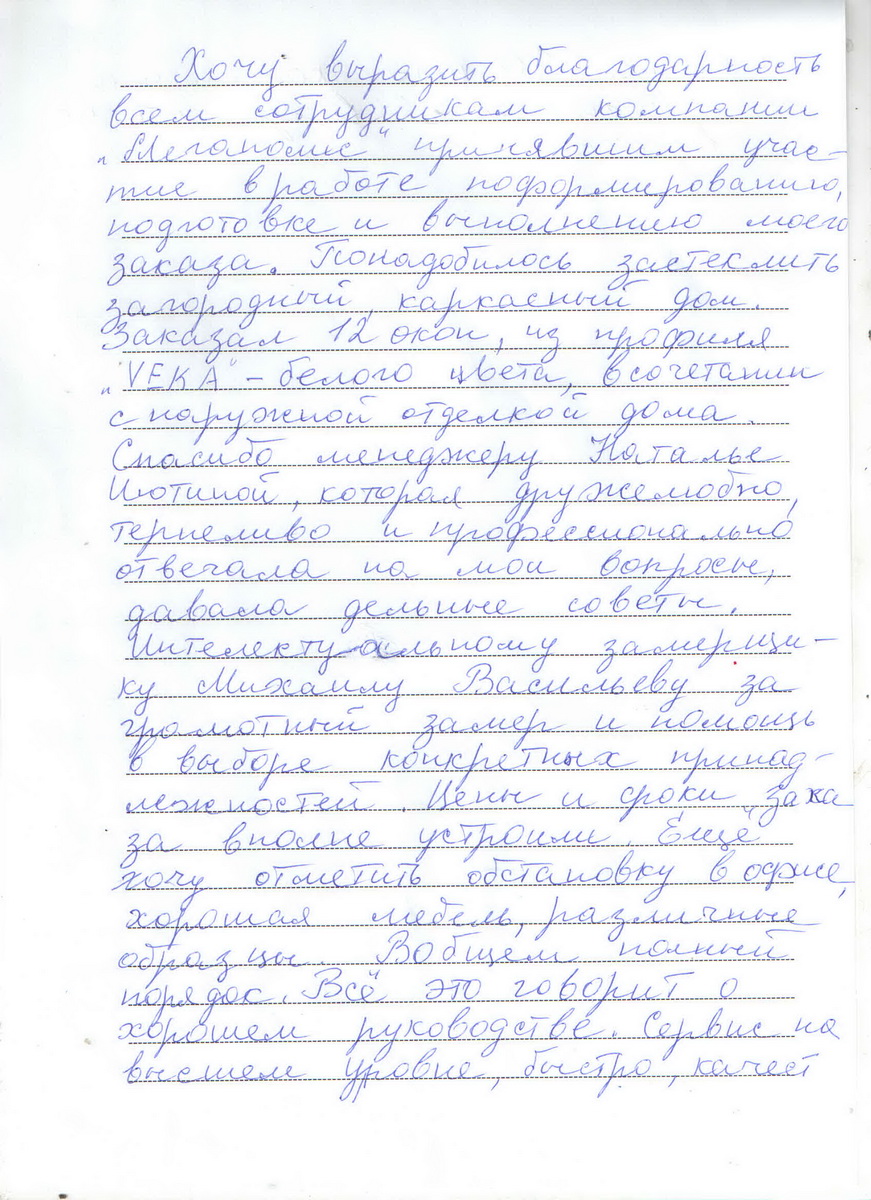 Хочу выразить благодарность
всем сотрудникам компании
"Мегаполис" принявшим учас-
тие в работе по формированию,
подготовке и выполнению моего
заказа. Понадобилось застеклить
загородный каркасный дом.
Заказал 12 окон, из профиля
"VEKA" - белого цвета, в сочетании
с наружной отделкой дома.
Спасибо менеджеру Наталье
которая дружелюбно,
терпеливо и профессионально
отвечала на мои вопросы,
давала дельные советы.
Интелектуальному замерщи-
ку Михаилу Васильеву за
грамотный замер и помощь
в выборе конкретных принад-
лежностей. Цены и сроки зака
за вполне устроили. Ещё
хочу отметить обстановку в офисе,
хорошая мебель, различные
образцы. Вобщем полный
порядок. Всё это говорит о
хорошем руководстве. Сервис на
высшем уровне, быстро, качест